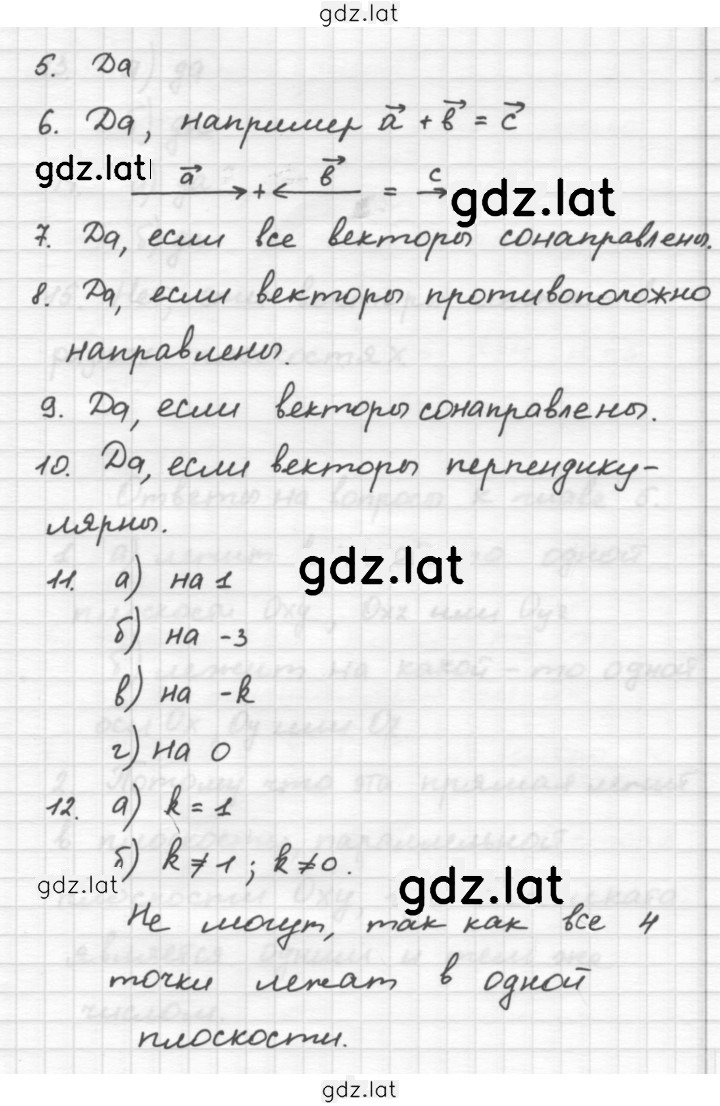 gdz.lat
5. Да
6. Да, например a⃗ + b⃗ = c⃗
gdz.lat
a⃗ + b⃗ = c
gdz.lat
7. Да, если все векторы сонаправлены.
8. Да, если векторы противоположно
направлены.
9. Да, если векторы сонаправлены.
10. Да, если векторы перпендику-
лярны.
gdz.lat
11. а) на 1
б) на -3
в) на -k
г) на 0
12. а) k = 1
б) k ≠ 1 ; k ≠ 0.
gdz.lat
gdz.lat
Не могут, так как все 4
точки лежат в одной
плоскости.
gdz.lat